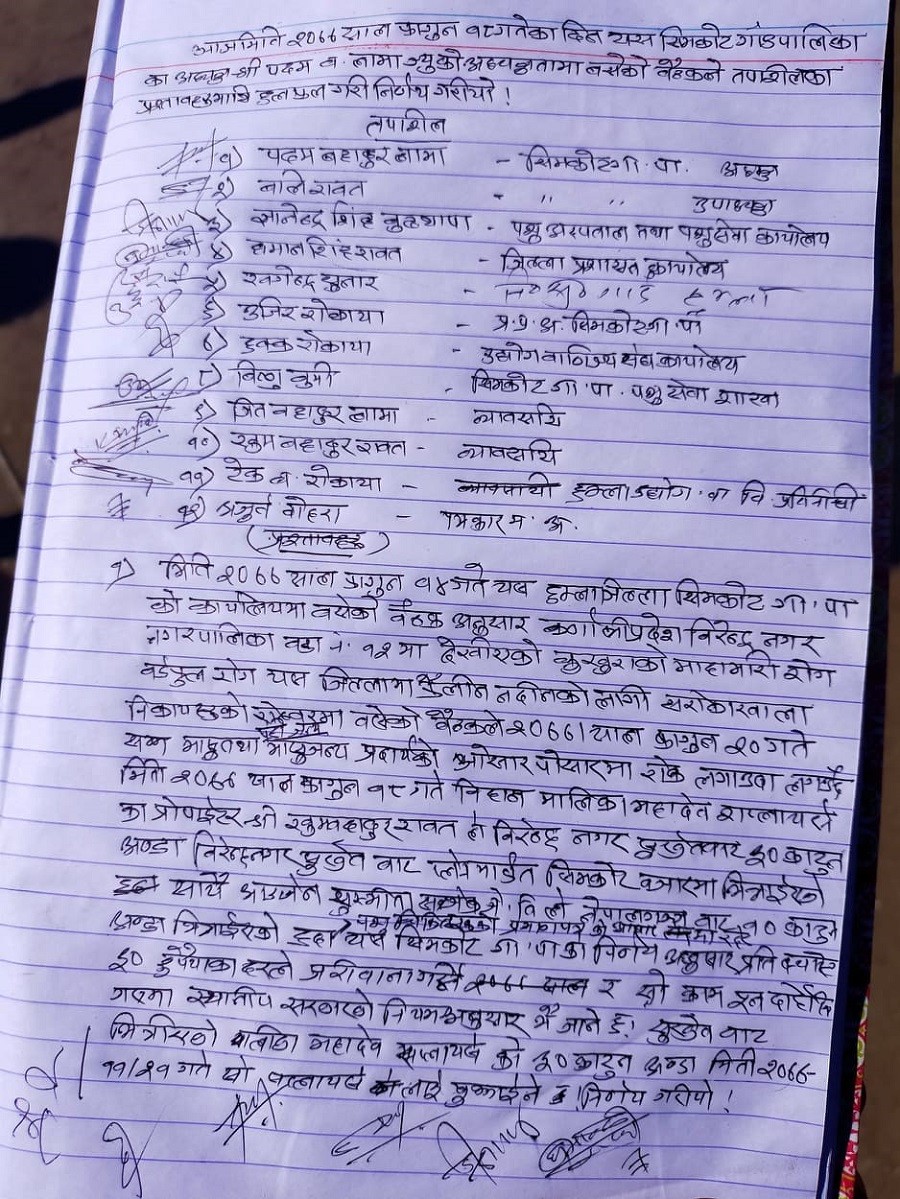 आज मिति २०७७ साल फागुन १८ गतेका दिन यस सिमकोट गाउपालिका
का अध्यक्ष श्री पदम ब. लामा ज्युको अध्यक्षतामा बसेको बैठकले तपशिलका
प्रस्तावहरुमाथि छलफल गरी निर्णय गरीयो।
तपाशिल
१) पदम बहादुर लामा - सिमकोट गा. पा. अध्यक्ष
२) रावत - " " उपाध्यक्ष
३) ज्ञानेन्द्र सिंह बुढाथापा - पशु अस्पताल तथा पशु सेवा कार्यालय
४) सिंह रावत - जिल्ला प्रशासन कार्यालय
५) खगेन्द्र सुनार -
६) उजिर रोकाया - प्र. प्र. अ. सिमकोट गा. पा
७) हक्क रोकाया - उद्योग वाणिज्य संघ कार्यालय
८) विष्णु - सिमकोट गा. पा. पशु सेवा शाखा
९) जित बहादुर लामा - व्यावसायि
१०) रुकुम बहादुर रावत - व्यावसायि
११) टेक ब. रोकाया - हुम्ला उद्योग वा नि प्रतिनिधी
१२) अर्जुन बोहरा - पत्रकार म. अ.
(प्रस्तावहरु)
१) मिति २०७७ साल फागुन १४ गते यस हुम्ला जिल्ला सिमकोट गा. पा
को कार्यालयमा बसेको बैठक अनुसार कर्णाली प्रदेश विरेन्द्र नगर
नगरपालिका वडा नं. १२ मा देखीएको कुखुराको माहामारी रोग
बर्डफ्लु रोग यस जिल्लामा फैलीन नदीनको लागी सरोकारवाला
निकाएहरुको बसेको बैठकले २०७७ साल फागुन २० गते
सम्म मासु तथा मासुजन्य पदार्थको ओसार पोसारमा रोक लगाउदा लगाउदै
मिती २०७७ साल फागुन १८ गते विहान मालिका महादेव सप्लायर्स
का प्रोपाईटर श्री रुकुम बहादुर रावत ले विरेन्द्र नगर सुर्खेतबाट ३० काटुन
अण्डा विरेन्द्रनगर सुर्खेत बाट सिमकोट बजारमा भित्राईएको
साथै नेपालगन्ज बाट १० काटुन
अण्डा भित्राईएको हुदा यस सिमकोट गा. पा का निर्णय अनुसार प्रति
५० रुपैयाका दरले जरीवाना गर्ने र सो काम हुन दोहोर्याई
गएमा स्थानीय सरकारको नियम अनुसार मै जाने छ। सुर्खेत बाट
भित्रीएको मालीका महादेव सप्लायर्स को ३० काटुन अण्डा मिती २०७७-
११/२१ गते सो सप्लायर्स लाई निर्णय गरीयो।